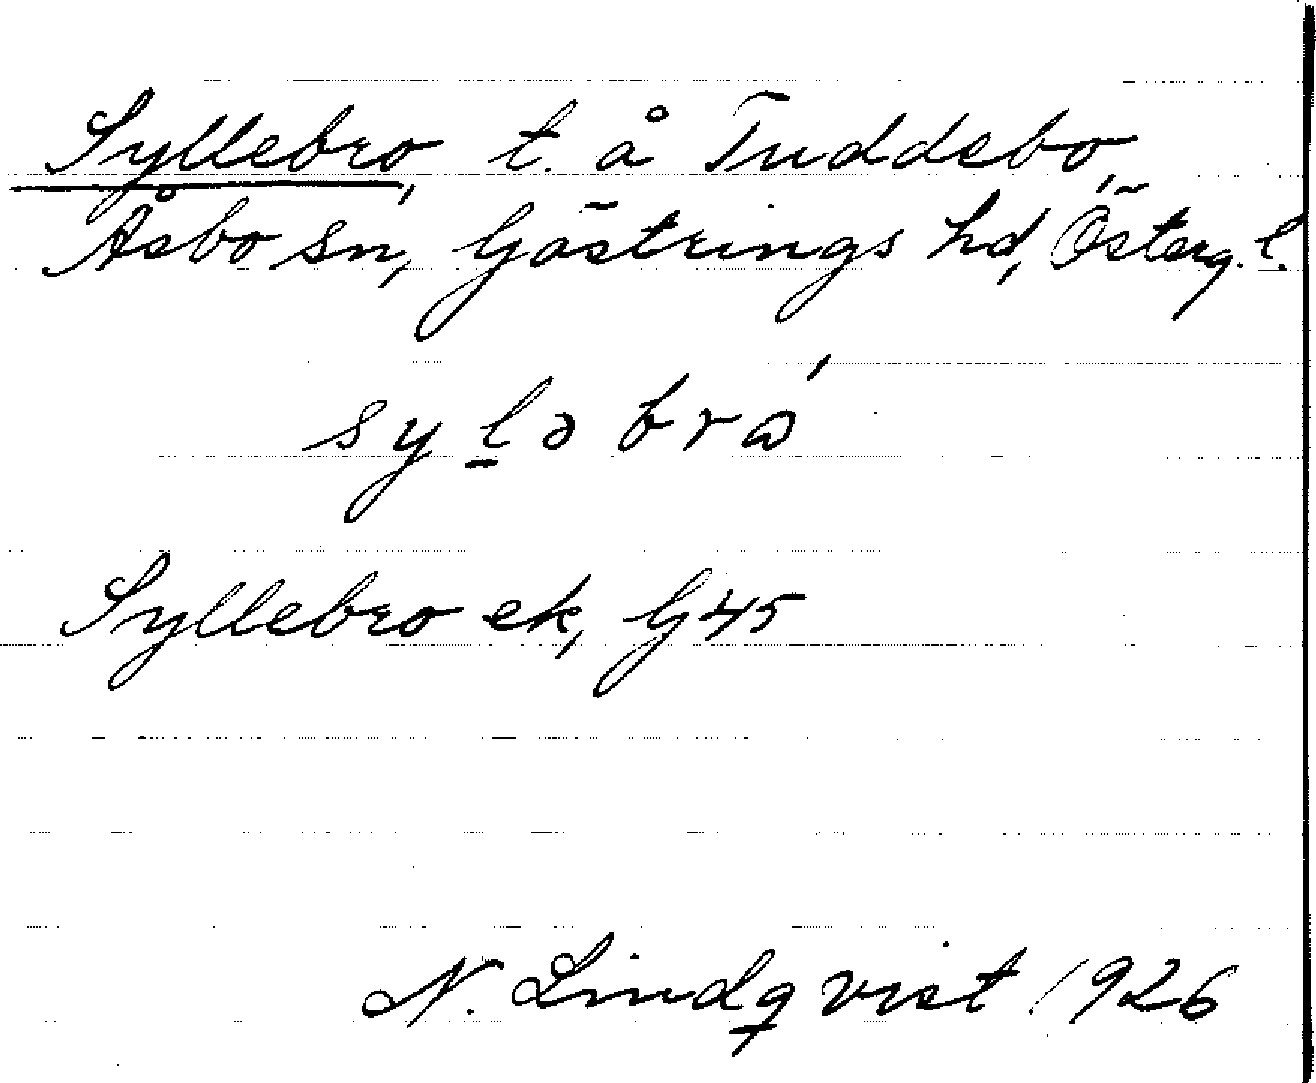 Syllebro, t. å Tuddebo,
Åsbo sn, Göstrings hd, Österg. l.
syləbrɷ́
Syllebro ek, G 45
N. Lindqvist 1926